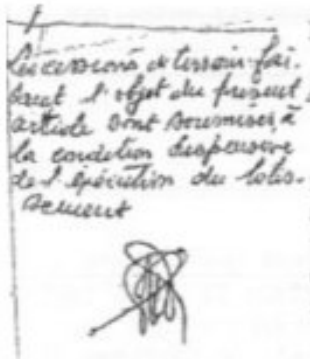 Les cessions de terrain fai-
sant l'objet du présent
article sont soumises à
la condition suspensive
de l'exécution du lotis-
sement